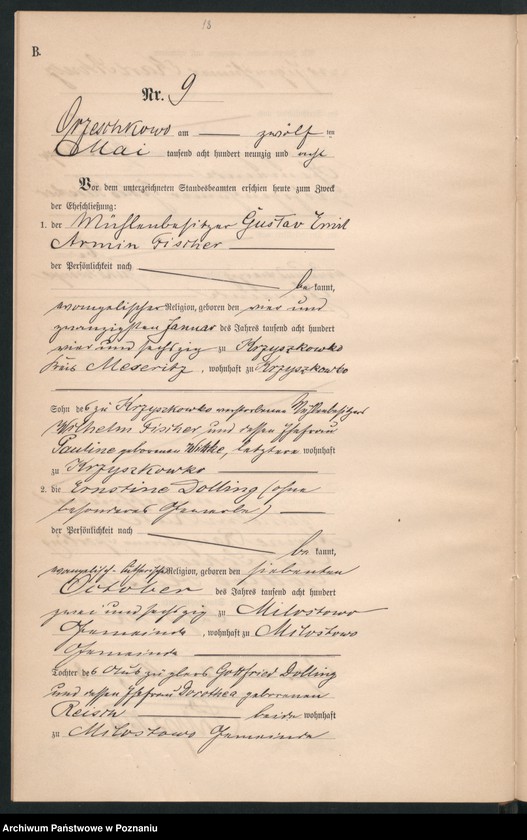 18
B.
Nr. 9
Orzeschkowo am zwölf ten
Mai tausend acht hundert neunzig und acht
Vor dem unterzeichneten Standesbeamten erschien heute zum Zweck
der Eheschließung:
1. der Mühlenbesitzer Gustav Emil
Armin Fischer
der Persönlichkeit nach
be kannt,
evangelischer Religion, geboren den vier und
zwanzigsten Januar des Jahres tausend acht hundert
vier und sechszig zu Krzyszkowko
Kreis Meseritz, wohnhaft zu Krzyszkowko
Sohn des zu Krzyszkowko verstorbenen Mühlenbesitzers
Wilhelm Fischer und dessen Ehefrau
Pauline geborenen Wittke, letztere wohnhaft
zu Krzyszkowko
2. die Ernstine Dolling (ohne
besonderes Gewerbe)
der Persönlichkeit nach
be kannt,
evangelisch-lutherisch Religion, geboren den siebenten
October des Jahres tausend acht hundert
zwei und sechszig zu Milostowo
Gemeinde, wohnhaft zu Milostowo
Gemeinde
Tochter des Auszüglers Gottfried Dolling
und dessen Ehefrau Dorothea geborenen
Reisch beide wohnhaft
zu Milostowo Gemeinde
Archiwum Państwowe w Poznaniu